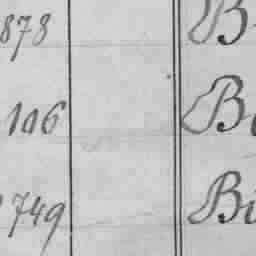 873 B
106 B
749 Bi